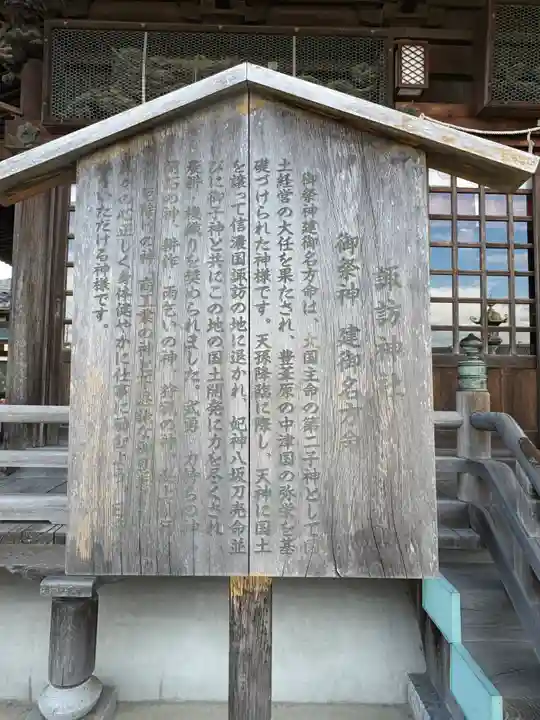 諏訪神社
御祭神 建御名方命
御祭神建御名方命は、大国主命の第二子神として国
土経営の大任を果たされ、豊葦原の中津国の弥栄を基
礎づけられた神様です。天孫降臨に際し、天神に国土
を譲って信濃国諏訪の地に退かれ、妃神八坂刀売命並
びに御子神と共にこの地の国土開発に力を尽くされ、
農耕、機織りを奨められました。武勇、力持ちの神
の神、耕作、雨乞いの神、狩猟の神、
の神、商工業の神
心正しく身体健やかに仕事に
いただける神様です。